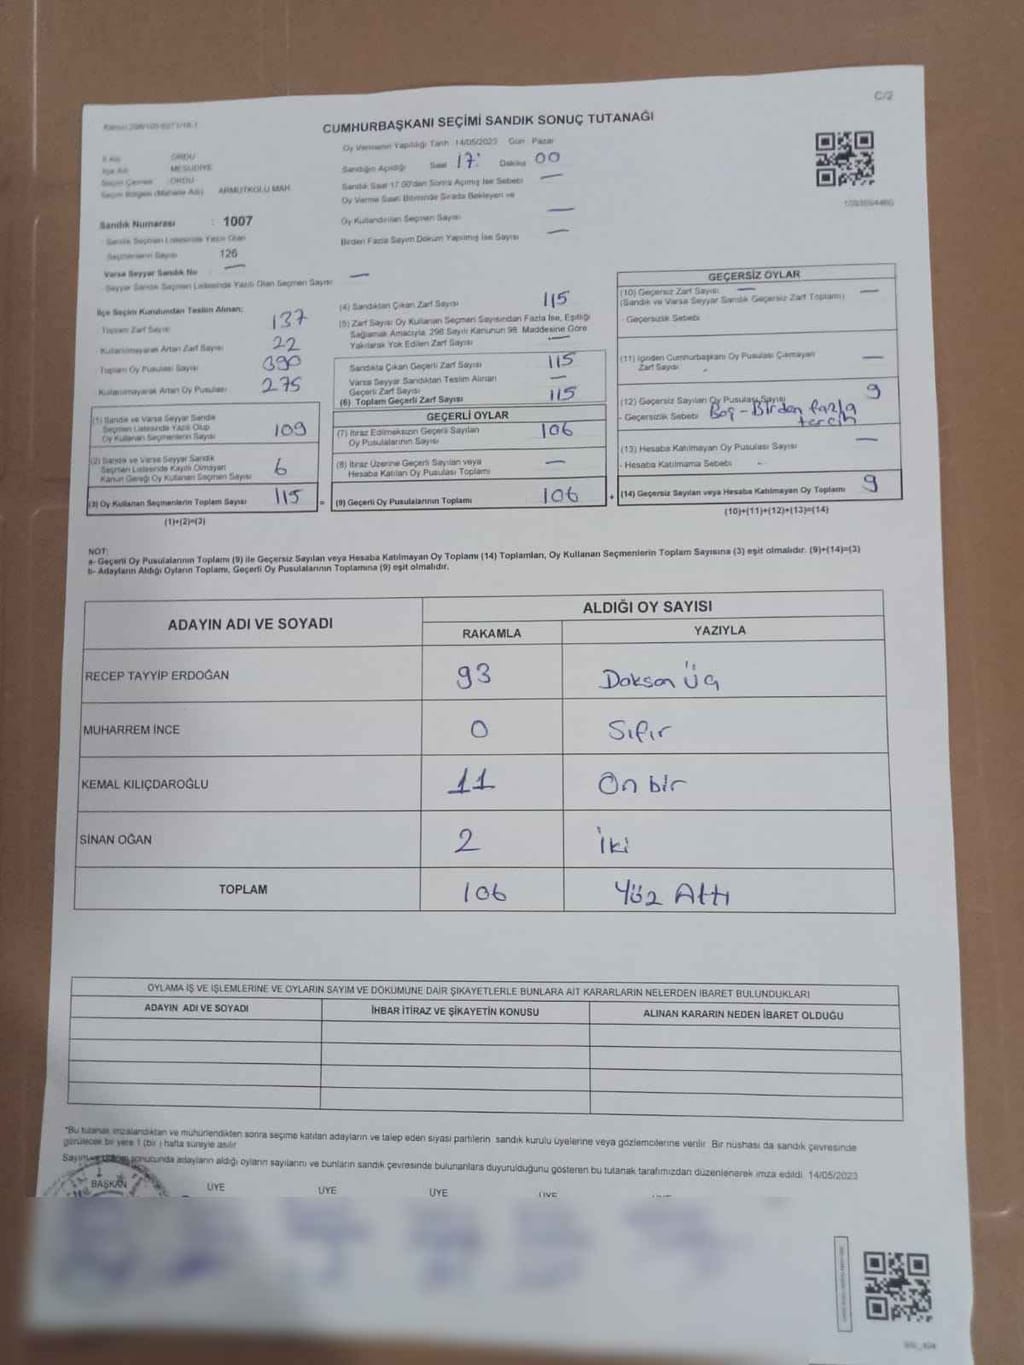 C/2
CUMHURBAŞKANI SEÇİMİ SANDIK SONUÇ TUTANAĞI
Oy Vermenin Yapıldığı Tarih :14/05/2023 Gün : Pazar
İl Adı : ORDU
Sandığın Açıldığı Saat 17: Dakika 00
İlçe Adı : MESUDİYE
Seçim Çevresi : ORDU
Sandık Saat 17:00'den Sonra Açılmış İse Sebebi —
Seçim Bölgesi (Mahalle Adı) : ARMUTKOLU MAH.
Oy Verme Saati Bitiminde Sırada Bekleyen ve
Oy Kullandırılan Seçmen Sayısı —
Sandık Numarası : 1007
Birden Fazla Sayım Döküm Yapılmış İse Sayısı —
Sandık Seçmen Listesinde Yazılı Olan
Seçmenlerin Sayısı : 126
Varsa Seyyar Sandık No —
Seyyar Sandık Seçmen Listesinde Yazılı Olan Seçmen Sayısı —
İlçe Seçim Kurulundan Teslim Alınan;
Toplam Zarf Sayısı 137
Kullanılmayarak Artan Zarf Sayısı 22
Toplam Oy Pusulası Sayısı 390
Kullanılmayarak Artan Oy Pusulası 275
(1) Sandık ve Varsa Seyyar Sandık
Seçmen Listesinde Yazılı Olup
Oy Kullanan Seçmenlerin Sayısı 109
(2) Sandık ve Varsa Seyyar Sandık
Seçmen Listesinde Kayıtlı Olmayan
Kanun Gereği Oy Kullanan Seçmen Sayısı 6
(3) Oy Kullanan Seçmenlerin Toplam Sayısı 115
(1)+(2)=(3)
(4) Sandıktan Çıkan Zarf Sayısı 115
(5) Zarf Sayısı Oy Kullanan Seçmen Sayısından Fazla İse, Eşitliği
Sağlamak Amacıyla, 298 Sayılı Kanunun 98. Maddesine Göre
Yakılarak Yok Edilen Zarf Sayısı —
Sandıkta Çıkan Geçerli Zarf Sayısı 115
Varsa Seyyar Sandıktan Teslim Alınan
Geçerli Zarf Sayısı —
(6) Toplam Geçerli Zarf Sayısı 115
GEÇERLİ OYLAR
(7) İtiraz Edilmeksizin Geçerli Sayılan
Oy Pusulalarının Sayısı 106
(8) İtiraz Üzerine Geçerli Sayılan veya
Hesaba Katılan Oy Pusulası Toplamı —
= (9) Geçerli Oy Pusulalarının Toplamı 106
GEÇERSİZ OYLAR
(10) Geçersiz Zarf Sayısı —
(Sandık ve Varsa Seyyar Sandık Geçersiz Zarf Toplamı) —
- Geçersizlik Sebebi
(11) İçinden Cumhurbaşkanı Oy Pusulası Çıkmayan
Zarf Sayısı —
(12) Geçersiz Sayılan Oy Pusulası Sayısı 9
- Geçersizlik Sebebi Boş - Birden fazla
tercih
(13) Hesaba Katılmayan Oy Pusulası Sayısı —
- Hesaba Katılmama Sebebi -
+ (14) Geçersiz Sayılan veya Hesaba Katılmayan Oy Toplamı 9
(10)+(11)+(12)+(13)=(14)
NOT:
a- Geçerli Oy Pusulalarının Toplamı (9) ile Geçersiz Sayılan veya Hesaba Katılmayan Oy Toplamı (14) Toplamları, Oy Kullanan Seçmenlerin Toplam Sayısına (3) eşit olmalıdır. (9)+(14)=(3)
b- Adayların Aldığı Oyların Toplamı, Geçerli Oy Pusulalarının Toplamına (9) eşit olmalıdır.
ADAYIN ADI VE SOYADI ALDIĞI OY SAYISI
RAKAMLA YAZIYLA
RECEP TAYYİP ERDOĞAN 93 Doksan Üç
MUHARREM İNCE 0 Sıfır
KEMAL KILIÇDAROĞLU 11 On bir
SİNAN OĞAN 2 İki
TOPLAM 106 Yüz Altı
OYLAMA İŞ VE İŞLEMLERİNE VE OYLARIN SAYIM VE DÖKÜMÜNE DAİR ŞİKAYETLERLE BUNLARA AİT KARARLARIN NELERDEN İBARET BULUNDUKLARI
ADAYIN ADI VE SOYADI İHBAR İTİRAZ VE ŞİKAYETİN KONUSU ALINAN KARARIN NEDEN İBARET OLDUĞU
*Bu tutanak imzalandıktan ve mühürlendikten sonra seçime katılan adayların ve talep eden siyasi partilerin sandık kurulu üyelerine veya gözlemcilerine verilir. Bir nüshası da sandık çevresinde
görülecek bir yere 1 (bir ) hafta süreyle asılır.
sonucunda adayların aldığı oyların sayılarını ve bunların sandık çevresinde bulunanlara duyurulduğunu gösteren bu tutanak tarafımızdan düzenlenerek imza edildi. 14/05/2023
BAŞKAN ÜYE ÜYE ÜYE ÜYE